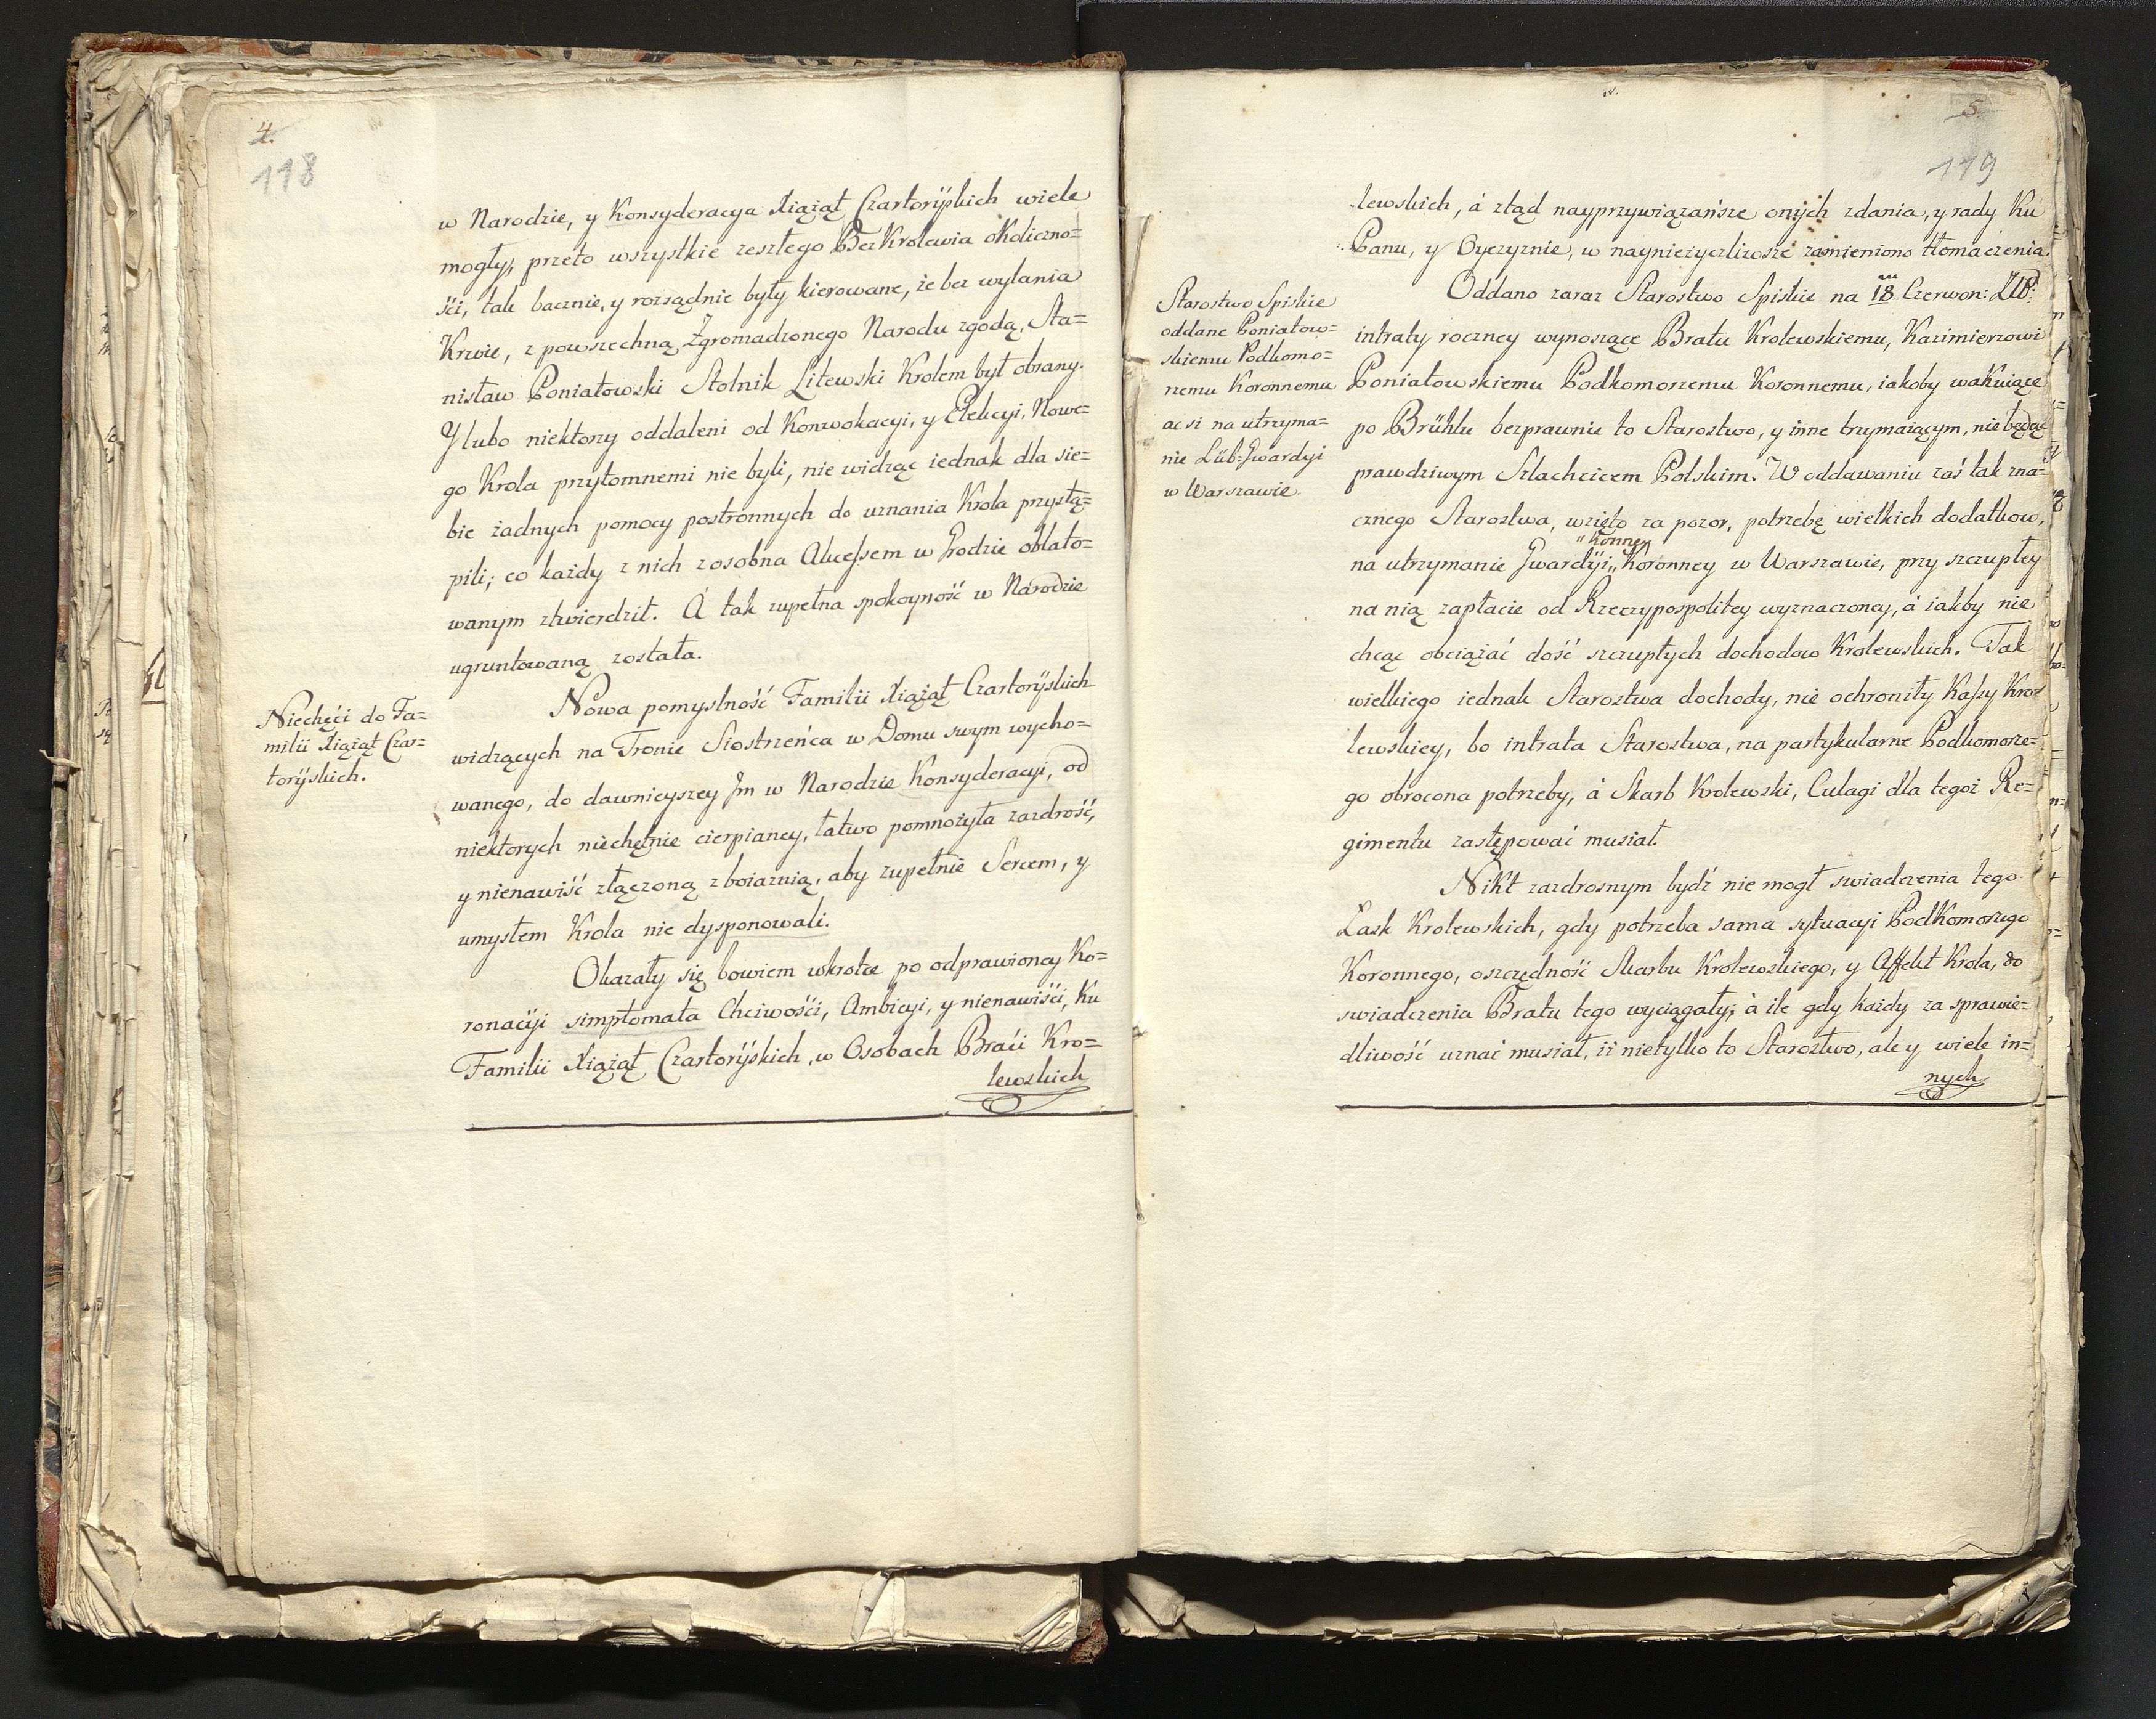 4.
118
w Narodzie, y Konsyderacya Xiążąt Czartoryskich wiele
mogły, przeto wszystkie zeszłego BezKrolewia okoliczno=
ści, tak bacznie, y rozsądnie były kierowane, że bez wylania
Krwie, z powszechną Zgromadzonego Narodu zgodą, Sta=
nisław Poniatowski Stolnik Litewski Krolem był obrany.
Y lubo niektorzy oddaleni od Konwokacyi, y Elekcyi, Nowe=
go Krola przytomnemi nie byli, nie widząc iednak dla sie=
bie żadnych pomocy postronnych do uznania Krola przystą=
pili; co każdy z nich zosobna Akcessem w Grodzie oblato=
wanym ztwierdził. Á tak zupełna spokoyność w Narodzie
ugruntowaną została.
Niechęći do Fa=
milii Xiążąt Czar=
toryskich.
Nowa pomyslność Familii Xiążąt Czartoryskich
widzących na Tronie Siostrzeńca w Domu swym wycho=
wanego, do dawnieyszey Jm w Narodzie Konsyderacyi, od
niektorych niechętnie cierpianey, łatwo pomnożyła zazdrość,
y nienawiść złączoną z boiaznią, aby zupełnie Sercem, y
umysłem Krola nie dysponowali.
Okazały się bowiem wkrotce po odprawioney Ko=
ronacyi simptomata Chciwośći, Ambicyi, y nienawiśći, Ku
Familii Xiążąt Czartoryskich, w Osobach Braći Kro=
lewskich
5.
119
lewskich, á ztąd nayprzywiązańsze onych zdania, y rady Ku
Panu, y Oyczyznie, w naynieżyczliwsze zamieniono tłomaczenia.
Starostwo Spiskie
oddane Poniatow=
skiemu Podkomo=
rzemu Koronnemu
ac si na utrzyma=
nie Lub: Gwardyi
w Warszawie.
Oddano zaraz Starostwo Spiskie na 18 Czerwon: Zł:
intraty roczney wynoszące Bratu Krolewskiemu, Kazimierzowi
Poniatowskiemu Podkomorzemu Koronnemu, iakoby wakuiące
po Brühlu bezprawnie to Starostwo, y inne trzymaiącym, nie będąc
prawdziwym Szlachcicem Polskim. W oddawaniu zaś tak zna=
cznego Starostwa, wzięto za pozor, potrzebę wielkich dodatkow,
" Konney
na utrzymanie Gwardyi,, Koronney w Warszawie, przy szczupłey
na nią zapłacie od Rzeczypospolitey wyznaczoney, á iakby nie
chcąc obciążać dość szczupłych dochodow Krolewskich. Tak
wielkiego iednak Starostwa dochody, nie ochroniły Kassy Kro=
lewskiey, bo intrata Starostwa, na partykularne Podkomorze=
go obrocona potrzeby, á Skarb Krolewski, Culagi dla tegoż Re=
gimentu zastępować musiał.
Nikt zazdrosnym bydź nie mogł swiadczenia tego
Łask Krolewskich, gdy potrzeba sama sytuacyi Podkomorzego
Koronnego, oszczędność Skarbu Krolewskiego, y Affekt Krola, do
swiadczenia Bratu tego wyciągały; á ile gdy każdy za sprawie=
dliwość uznać musiał, iż nietylko to Starostwo, ale y wiele in=
nych